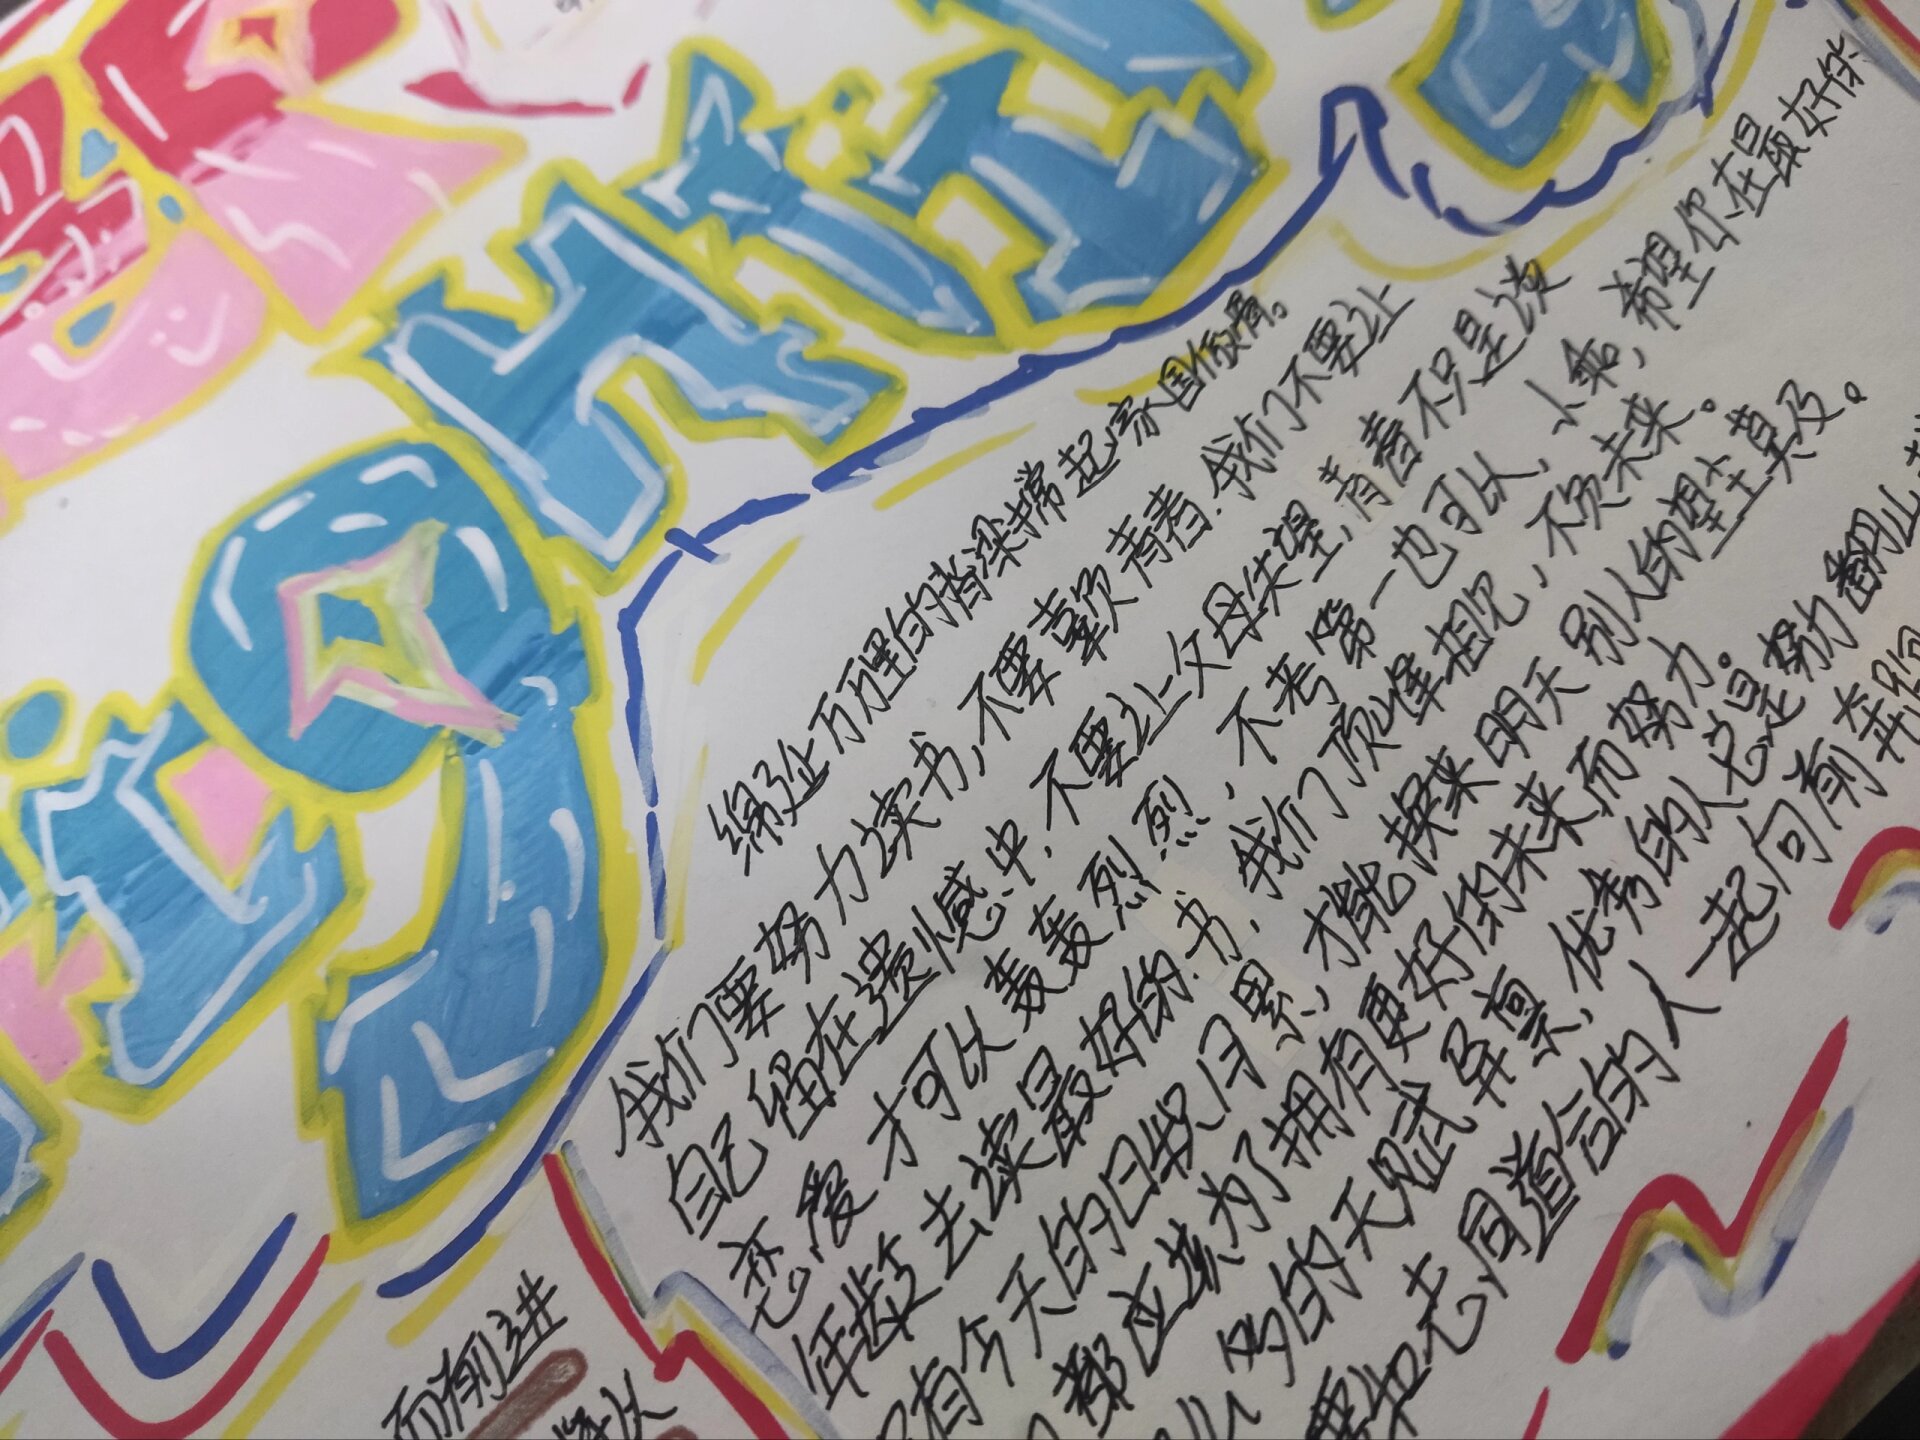 绵延万里的脊梁撑起家国傲骨。
我们要努力读书,不要辜负青春.我们不要让
自己留在遗憾中.不要让父母失望,青春不只是谈
恋爱才可以轰轰烈烈,不考第一也可以,小 希望你在最好
年龄去读最好的书,我们顶峰相见,不负未来。
有今天的日积月累,才能换来明天别人的望尘莫及。
都应该为了拥有更好的未来而努力。
的天赋异禀,优秀的人总是努力翻山
要和志同道合的人一起向前奔跑
而前进